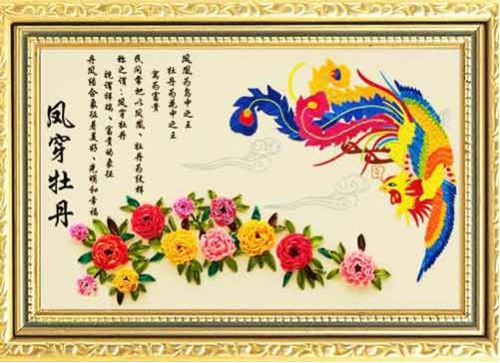 凤凰为鸟中之王
牡丹为花中之王
寓为富贵
民间常把以凤凰、牡丹为纹样
称之谓:凤穿牡丹
视谓祥瑞、富贵的象征
丹凤结合象征着美好、光明和幸福
凤穿牡丹